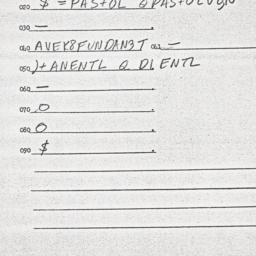 020 $ = PASTOL Q PASTOLVGN
030 —
040 AVEK8FUNDANGT 041 —
050 )+ ANENTL Q DIENTL
060 —
070 O
080 O
090 $